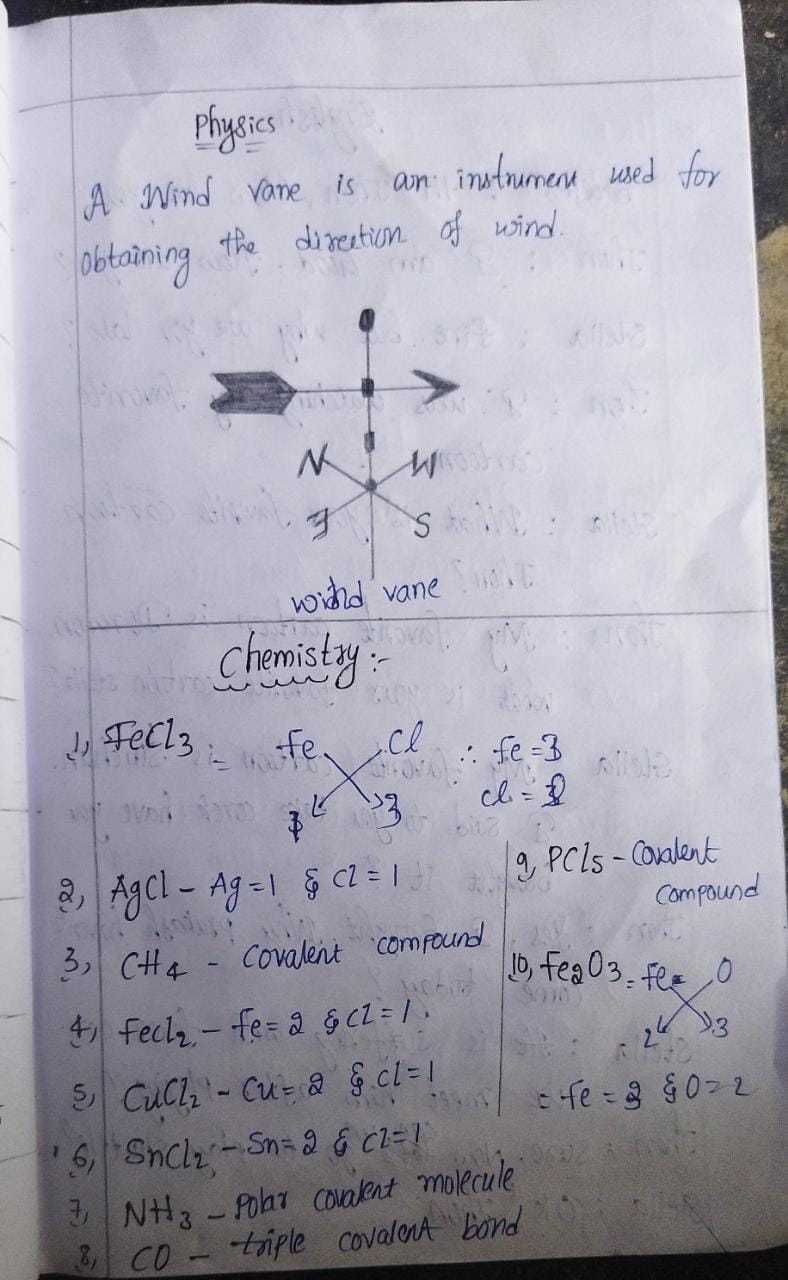 Physics
A Wind vane is an instrument used for
obtaining the direction of wind.
N W
E S
wind vane
Chemistry :-
1, FeCl3 = Fe Cl ∴ Fe = 3
1 3 Cl =
2, AgCl - Ag = 1 & Cl = 1
3, CH4 - Covalent compound
4, FeCl2 - Fe = 2 & Cl = 1.
5, CuCl2 - Cu = 2 & Cl = 1
6, SnCl2 - Sn = 2 & Cl = 1
7, NH3 - Polar covalent molecule
8, CO - triple covalent bond
9, PCl5 - Covalent
Compound
10, Fe2O3 = Fe O
2 3
= Fe = 3 & O = 2